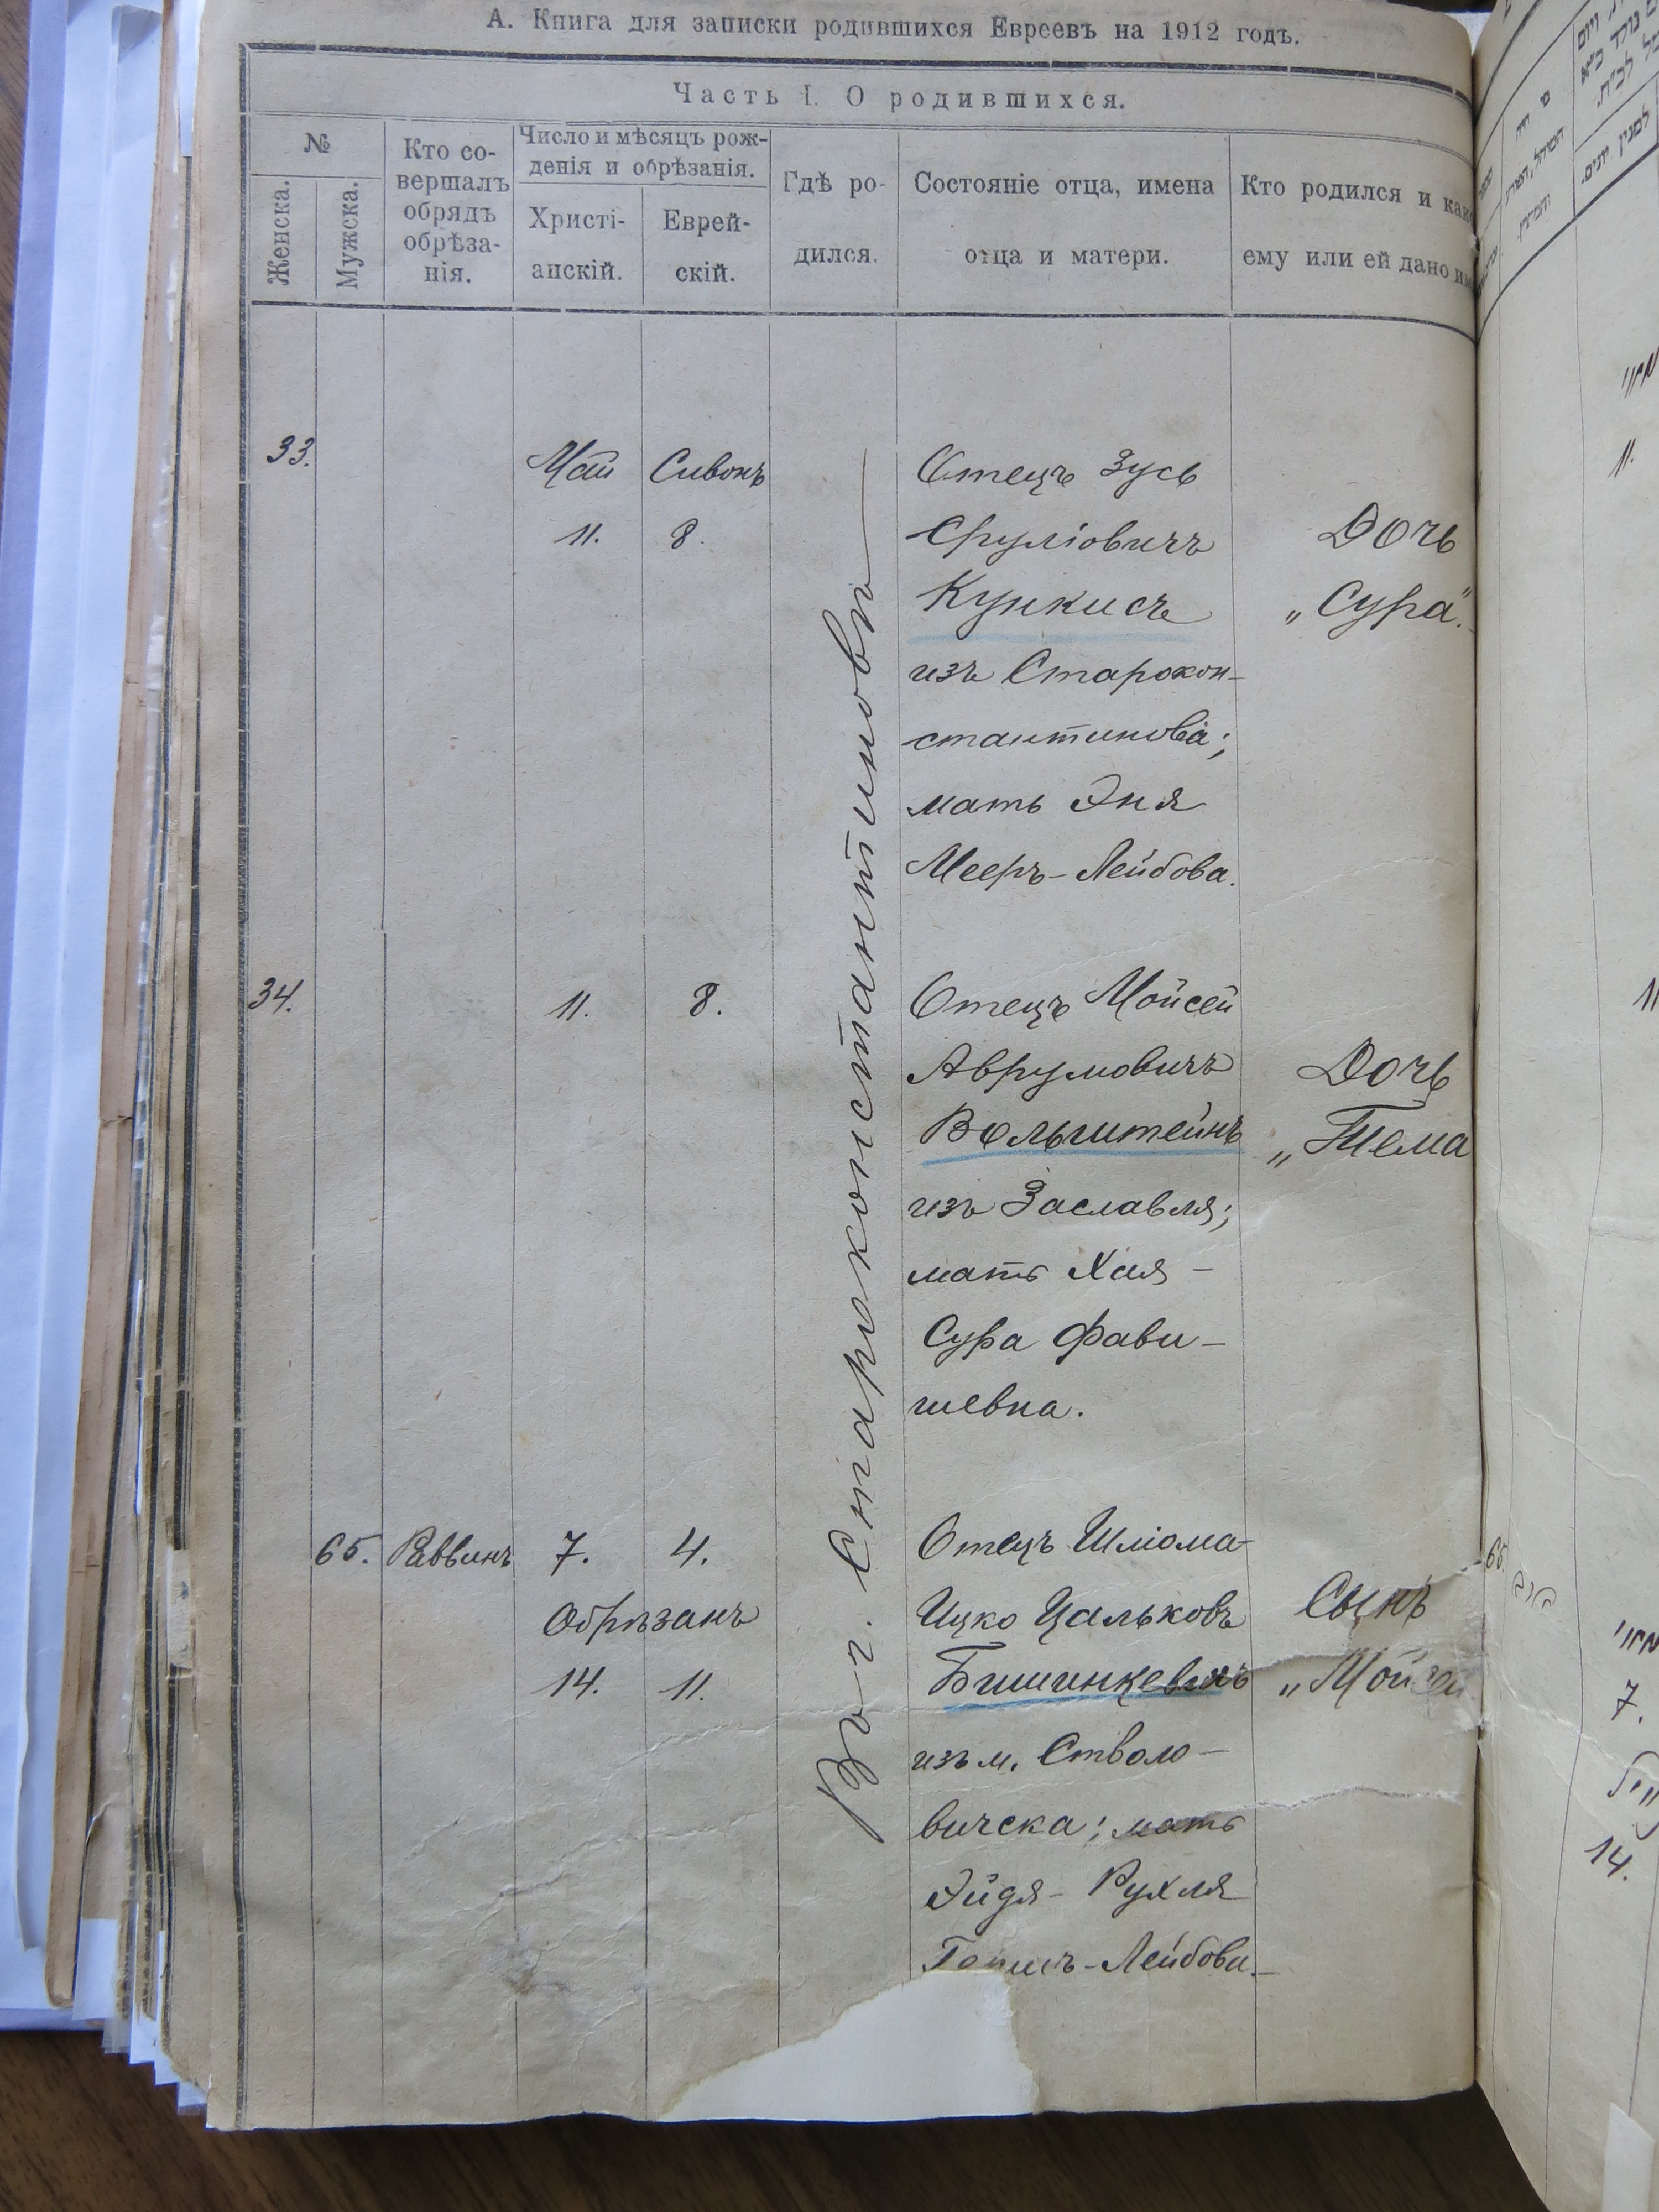 А. Книга для записки родившихся Евреевъ на 1912 годъ.
Часть I. О родившихся.
№
Женска.
Мужска.
Кто со-
вершалъ
обрядъ
обрѣза-
нія.
Число и мѣсяцъ рож-
денія и обрѣзанія.
Христі-
анскій.
Еврей-
скій.
Гдѣ ро-
дился.
Состояніе отца, имена
отца и матери.
Кто родился и како
ему или ей дано им
Въ г. Староконстантиновѣ
33.
Май
11.
Сивонъ
8.
Отецъ Зусь
Сруліовичъ
Кункисъ
изъ Старокон-
стантинова;
мать Эня
Мееръ-Лейбова.
Дочь
„Сура".
34.
11.
8.
Отецъ Мойсей
Аврумовичъ
Вольштейнъ
изъ Заславля;
мать Хая-
Сура Фави-
шевна.
Дочь
„Тема
65.
Раввинъ
7.
4.
Обрѣзанъ
14.
11.
Отецъ Шлiома-
Ицко Цальковъ
Бишинкевичъ
изъ м. Стволо-
вичска; мать
Эйдя-Рухля
-Лейбова.
Сынъ
„Мойсей
65.
11.
11
7.
14.